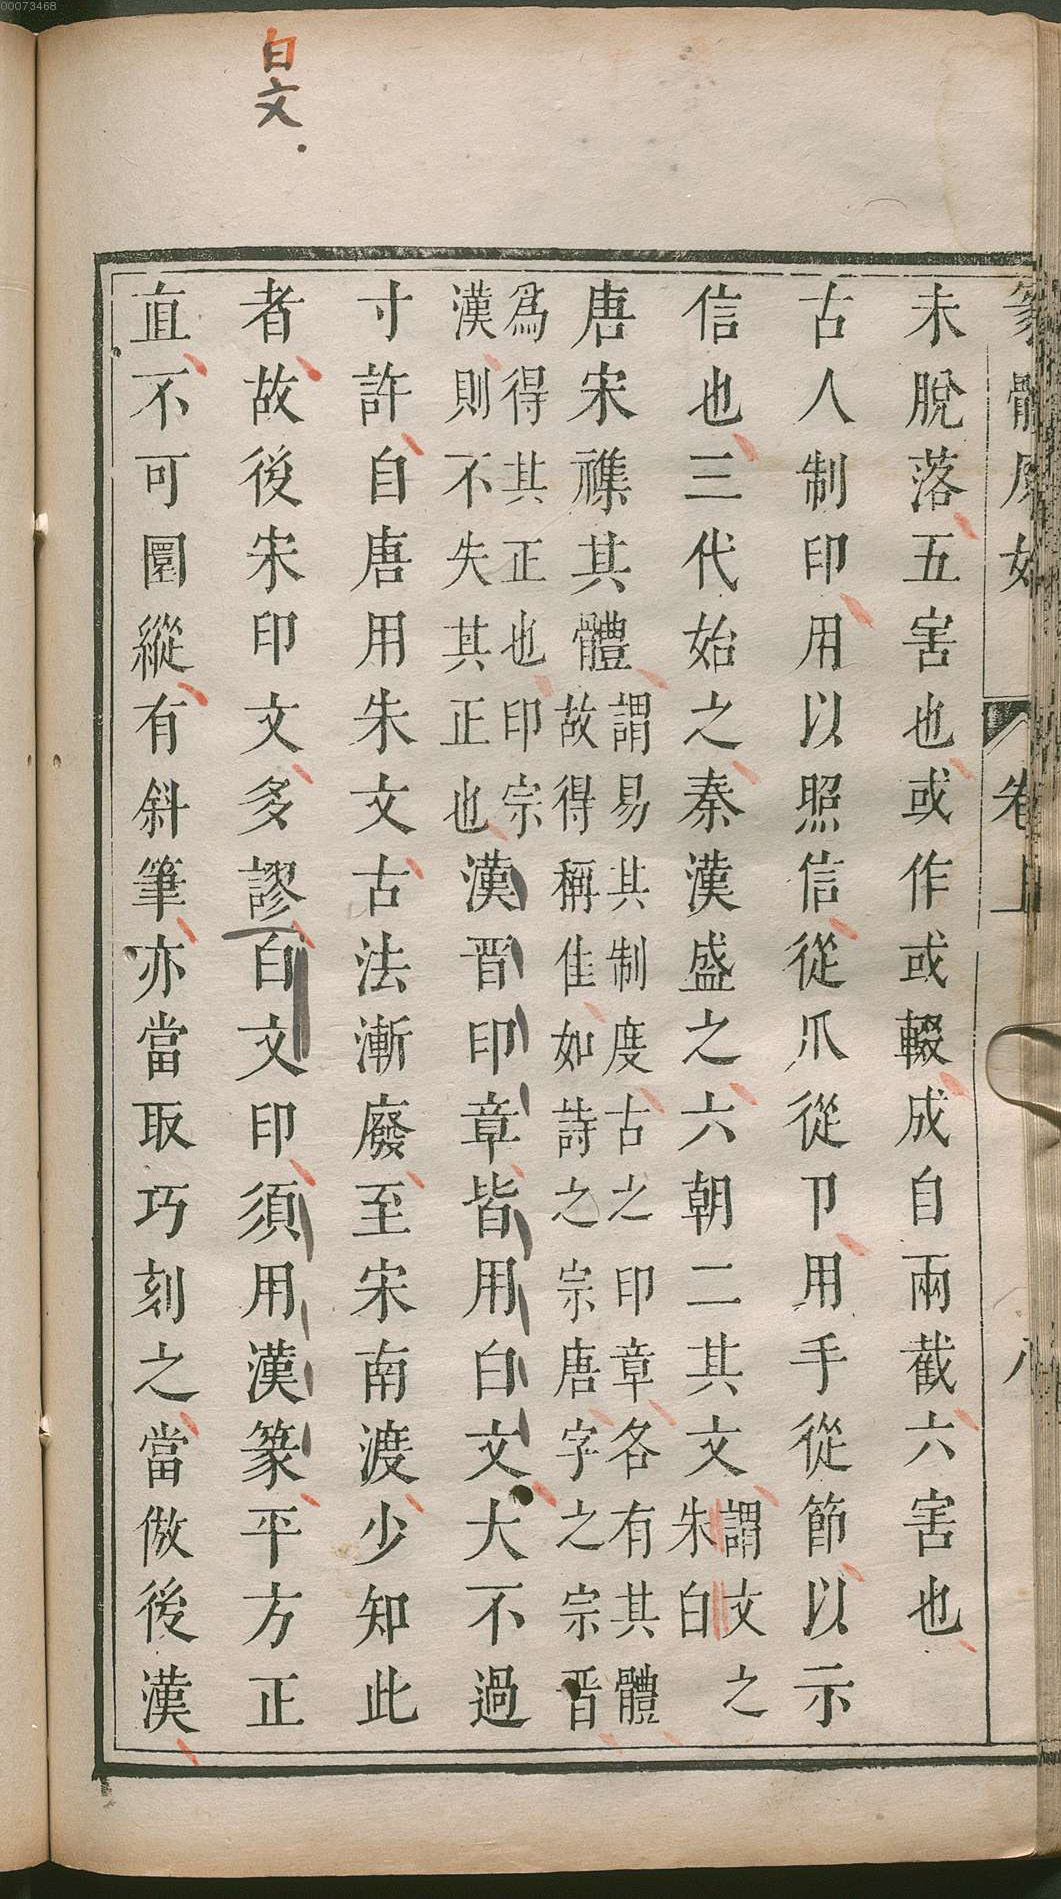 00073468
白文
篆體
卷上
八
未脫落五害也或作或輟成自兩截六害也
古人制印用以照信從爪從卩用手從節以示
信也三代始之秦漢盛之六朝二其文謂文之
朱白
唐宋襍其體謂易其制度古之印章各有其體
故得稱佳如詩之宗唐字之宗晉
爲得其正也印宗
漢則不失其正也漢晉印章皆用白文大不過
寸許自唐用朱文古法漸廢至宋南渡少知此
者故後宋印文多謬白文印須用漢篆平方正
直不可圓縱有斜筆亦當取巧刻之當倣後漢